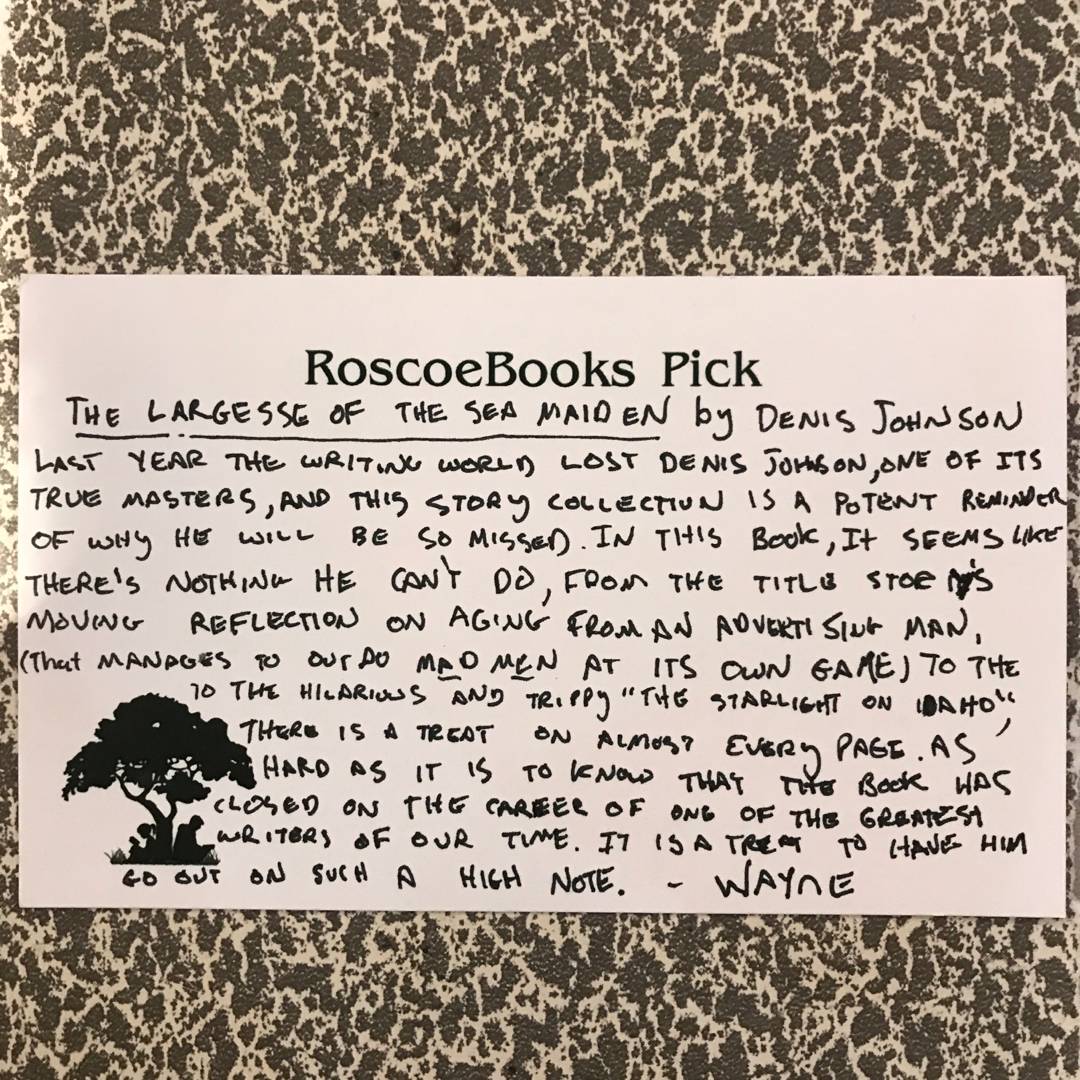 RoscoeBooks Pick
THE LARGESSE OF THE SEA MAIDEN by DENIS JOHNSON
LAST YEAR THE WRITING WORLD LOST DENIS JOHNSON, ONE OF ITS
TRUE MASTERS, AND THIS STORY COLLECTION IS A POTENT REMINDER
OF WHY HE WILL BE SO MISSED. IN THIS BOOK, IT SEEMS LIKE
THERE'S NOTHING HE CAN'T DO, FROM THE TITLE STORY'S
MOVING REFLECTION ON AGING FROM AN ADVERTISING MAN,
(THAT MANAGES TO OUT DO MAD MEN AT ITS OWN GAME) TO THE
TO THE HILARIOUS AND TRIPPY "THE STARLIGHT ON IDAHO",
THERE IS A TREAT ON ALMOST EVERY PAGE. AS
HARD AS IT IS TO KNOW THAT THE BOOK HAS
CLOSED ON THE CAREER OF ONE OF THE GREATEST
WRITERS OF OUR TIME. IT IS A TREAT TO HAVE HIM
GO OUT ON SUCH A HIGH NOTE. - WAYNE